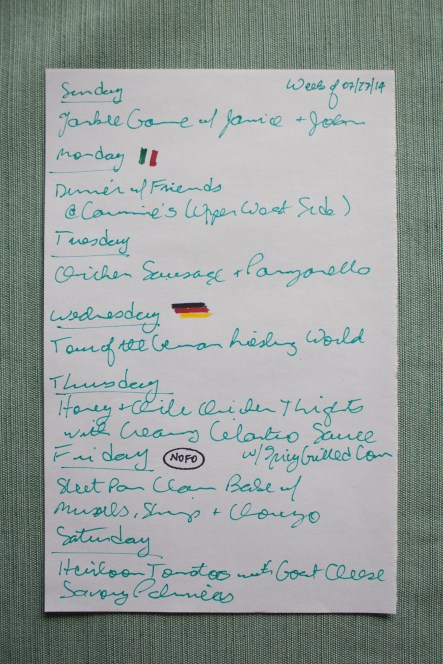 Sunday
Week of 07/27/14
Yankee Game w/ Janice + John
Monday
Dinner w/ Friends
@ Carmine's (Upper West Side)
Tuesday
Chicken Sausage + Panzanella
Wednesday
Tour of the German Riesling World
Thursday
Honey + Chile Chicken Thighs
with Creamy Cilantro Sauce
w/ Spicy Grilled Corn
Friday NOFO
Sheet Pan Clam Bake w/
Mussels, Shrimp + Chorizo
Saturday
Heirloom Tomatoes with Goat Cheese
Savory Palmiers